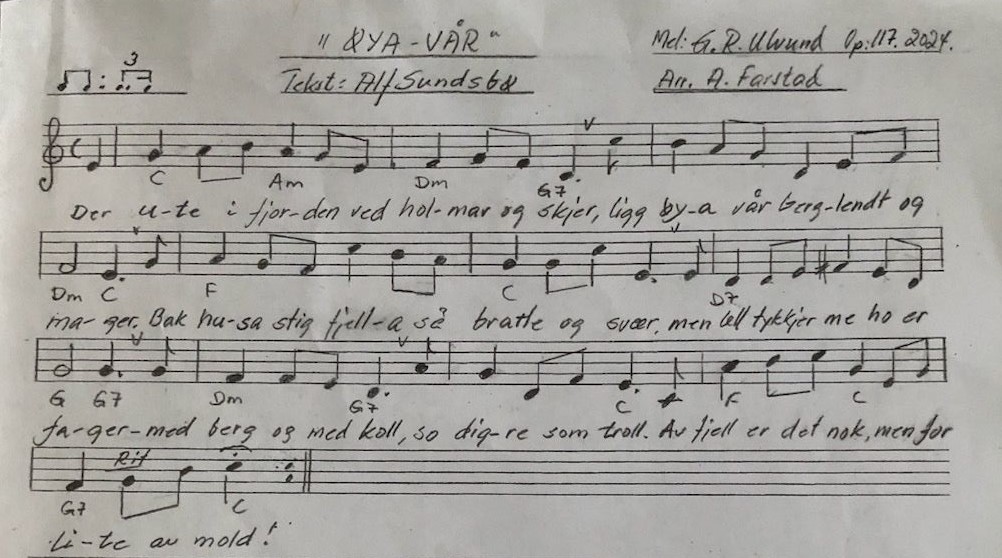 " ØYA-VÅR "
Mel: G. R. Ulvund Op:117. 2024.
3
Tekst: Alf Sundsbø
Arr. A. Farstad
C Am Dm G7
Der u-te i fjor-den ved hol-mar og skjer, ligg øy-a vår berg-lendt og
Dm C F C D7
ma-ger. Bak hu-sa stig fjell-a så bratte og svær, men lell tykkjer me ho er
G G7 Dm G7 C F C
fa-ger-med berg og med koll, so dig-re som troll. Av fjell er det nok, men for
Rit
G7 C
li-te av mold!